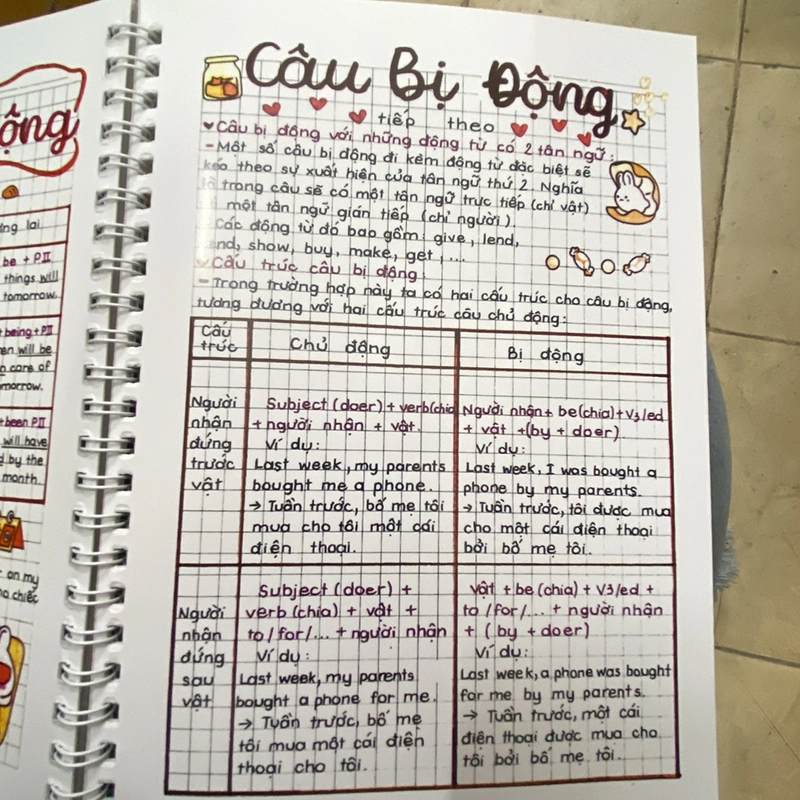 Câu Bị Động
tiếp theo
Câu bị động với những động từ có 2 tân ngữ:
- Một số câu bị động đi kèm động từ đặc biệt sẽ
kéo theo sự xuất hiện của tân ngữ thứ 2. Nghĩa
là trong câu sẽ có một tân ngữ trực tiếp (chỉ vật)
một tân ngữ gián tiếp (chỉ người).
Các động từ đó bao gồm: give, lend,
show, buy, make, get,...
Cấu trúc câu bị động:
- Trong trường hợp này ta có hai cấu trúc cho câu bị động,
tương đương với hai cấu trúc câu chủ động:
Cấu
trúc
Chủ động
Bị động
Người
nhận
đứng
trước
vật
Subject (doer) + verb(chia)
+ người nhận + vật.
Ví dụ:
Last week, my parents
bought me a phone.
→ Tuần trước, bố mẹ tôi
mua cho tôi một cái
điện thoại.
Người nhận + be(chia)+V3/ed
+ vật +(by + doer)
Ví dụ:
Last week, I was bought a
phone by my parents.
→ Tuần trước, tôi được mua
cho một cái điện thoại
bởi bố mẹ tôi.
Người
nhận
đứng
sau
vật
Subject (doer) +
verb (chia) + vật +
to/for/... + người nhận
Ví dụ:
Last week, my parents
bought a phone for me.
→ Tuần trước, bố mẹ
tôi mua một cái điện
thoại cho tôi.
vật + be (chia) + V3/ed +
to/for/... + người nhận
+ (by + doer)
Ví dụ:
Last week, a phone was bought
for me by my parents.
→ Tuần trước, một cái
điện thoại được mua cho
tôi bởi bố mẹ tôi.
ộng
lai
be + PII
things will
tomorrow.
being + PII
will be
care of
been PII
will have
by the
month.
on my
chiếc